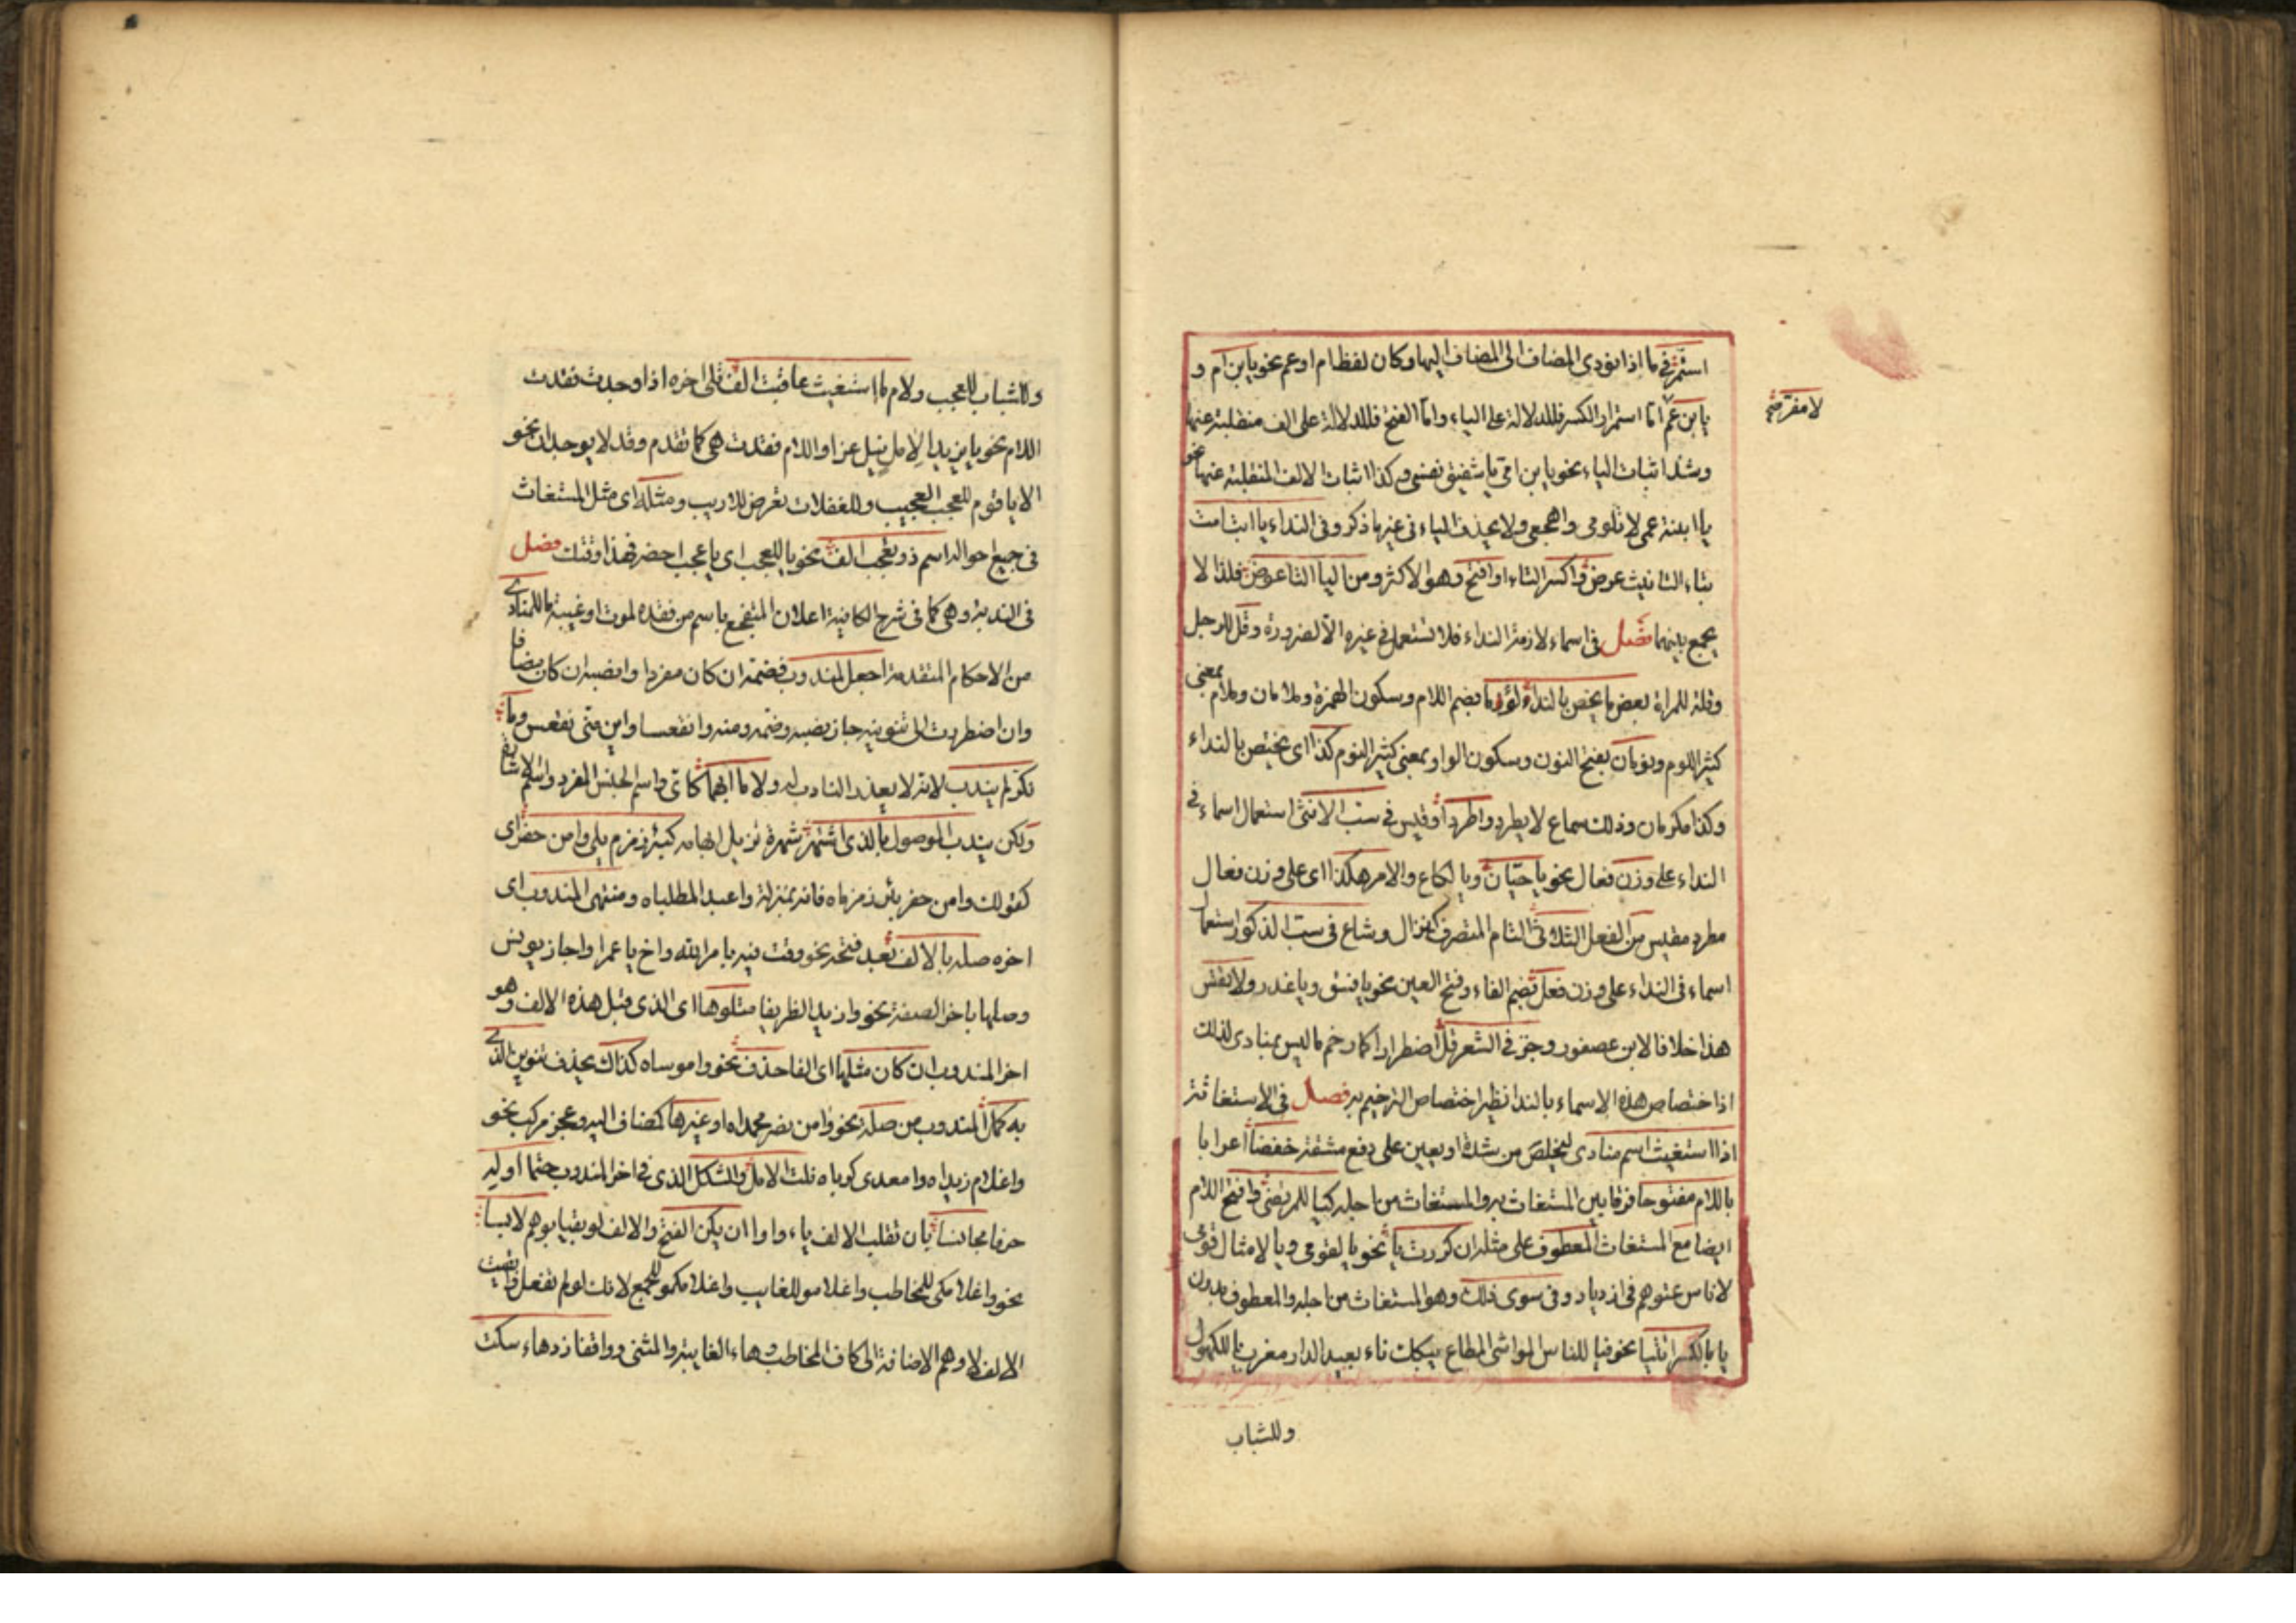 استمر في ما اذا نودي المضاف الى المضاف اليها وكان لفظ ام او عم نحو يا بن ام و
يا بن عم اما استمرار الكسر فللدلالة على الياء واما الفتح فللدلالة على الف منقلبة عنها
وشذ اثبات الياء نحو يا بن امي يا شقيق نفسي وكذا اثبات الالف المنقلبة عنها نحو
يا ابنة عمي لا تلومي واهجعي ولا يحذف الياء في غير ما ذكر وفي النداء يا ابت امت
بتاء التانيث عرض واكسر التاء او افتح وهو الاكثر ومن اليا التا عوض فلذا لا
يجمع بينهما فصل في اسماء لازمة النداء فلا تستعمل في غيره الا لضرورة وفل للرجل
وفلة للمراة بعض ما يخص بالنداء لؤمان بضم اللام وسكون الهمزة وملامان وملام بمعنى
كثير اللوم ونومان بفتح النون وسكون الواو بمعنى كثير النوم كذا اي يختص بالنداء
وكذا مكرمان وذلك سماع لا يطرد واطردا وقيس في سب الانثى استعمال اسماء في
النداء على وزن فعال نحو يا خباث ويا لكاع والامر هكذا اي على وزن فعال
مطرد مقيس من الفعل الثلاثي التام المتصرف كنزال وشاع في سب الذكور استعمال
اسماء في النداء على وزن فعل بضم الفاء وفتح العين نحو يا فسق ويا غدر ولا تقس
هذا خلافا لابن عصفور وجر في الشعر فل اضطرارا كما رخم ما ليس بمنادى لذلك
اذ اختصاص هذه الاسماء بالندا نظير اختصاص الترخيم به فصل في الاستغاثة
اذا استغيث اسم منادى ليخلص من شدة او يعين على دفع مشقة خفضا اعرابا
باللام مفتوحا فرقا بين المستغاث به والمستغاث من اجله كيا للمرتضى وافتح اللام
ايضا مع المستغاث المعطوف على مثله ان كررت يا نحو يا لقومي ويا لامثال قومي
لاناس عتوهم في ازدياد وفي سوى ذلك وهو المستغاث من اجله والمعطوف بدون
يا بالكسر ائتيا نحو فيا للناس للواشي المطاع يبكيك ناء بعيد الدار مغترب يا للكهول
وللشباب
لا مفترضي
وللشباب للعجب ولام ما استغيث عاقبت الف تلي اخره اذا وجدت فقدت
اللام نحو يا يزيدا لامل نيل عز او اللام فقدت هي كما تقدم وقد لا يوجدان نحو
الا يا قوم للعجب العجيب وللغفلات تعرض للاريب ومثله اي مثل المستغاث
في جميع احواله اسم ذو تعجب الف نحو يا للعجب اي يا عجب احضر فهذا وقتك فصل
في الندبة وهي كما في شرح الكافية اعلان المتفجع باسم من فقده لموت او غيبة ما للمنادى
من الاحكام المتقدمة اجعل لمندوب فضمه ان كان مفردا وانصبه ان كان مضافا
وان اضطررت الى تنوينه جاز نصبه وضمه ومنه وا فقعسا واين مني فقعس وما
نكر لم يندب لانه لا يعذر النادب له ولا ما ابهما كاي واسم الجنس المفرد واسم الاشارة
ولكن يندب الموصول بالذي اشتهر شهرة تزيل ابهامه كبئر زمزم يلي وا من حفر اي
كقولك وا من حفر بئر زمزماه فانه بمنزلة وا عبد المطلباه ومنتهى المندوب اي
اخره صله بالالف بعد فتحه نحو وقمت فيه بامر الله واخ يا عمرا واجاز يونس
وصلها باخر الصفة نحو وا زيد الظريفا متلوها اي الذي قبل هذه الالف وهو
اخر المندوب ان كان مثلها اي الفا حذف نحو وا موساه كذاك يحذف تنوين الذي
به كمل المندوب من صلة نحو وا من نصر محمداه او غيرها كمضاف اليه وعجز مركب نحو
وا غلام زيداه وا معدي كرباه نلت الامل والشكل الذي في اخر المندوب حتما اوله
حرفا مجانسا بان تقلب الالف ياء وواوا ان يكن الفتح والالف لو بقيا بوهم لابسا
نحو وا غلامكي للمخاطب وا غلامهو للغايب وا غلامكمو للجمع لانك لو لم تفعل وابقيت
الالف لاوهم الاضافة الى كاف المخاطب وهاء الغايبة والمثنى وواقفا زد هاء سكت